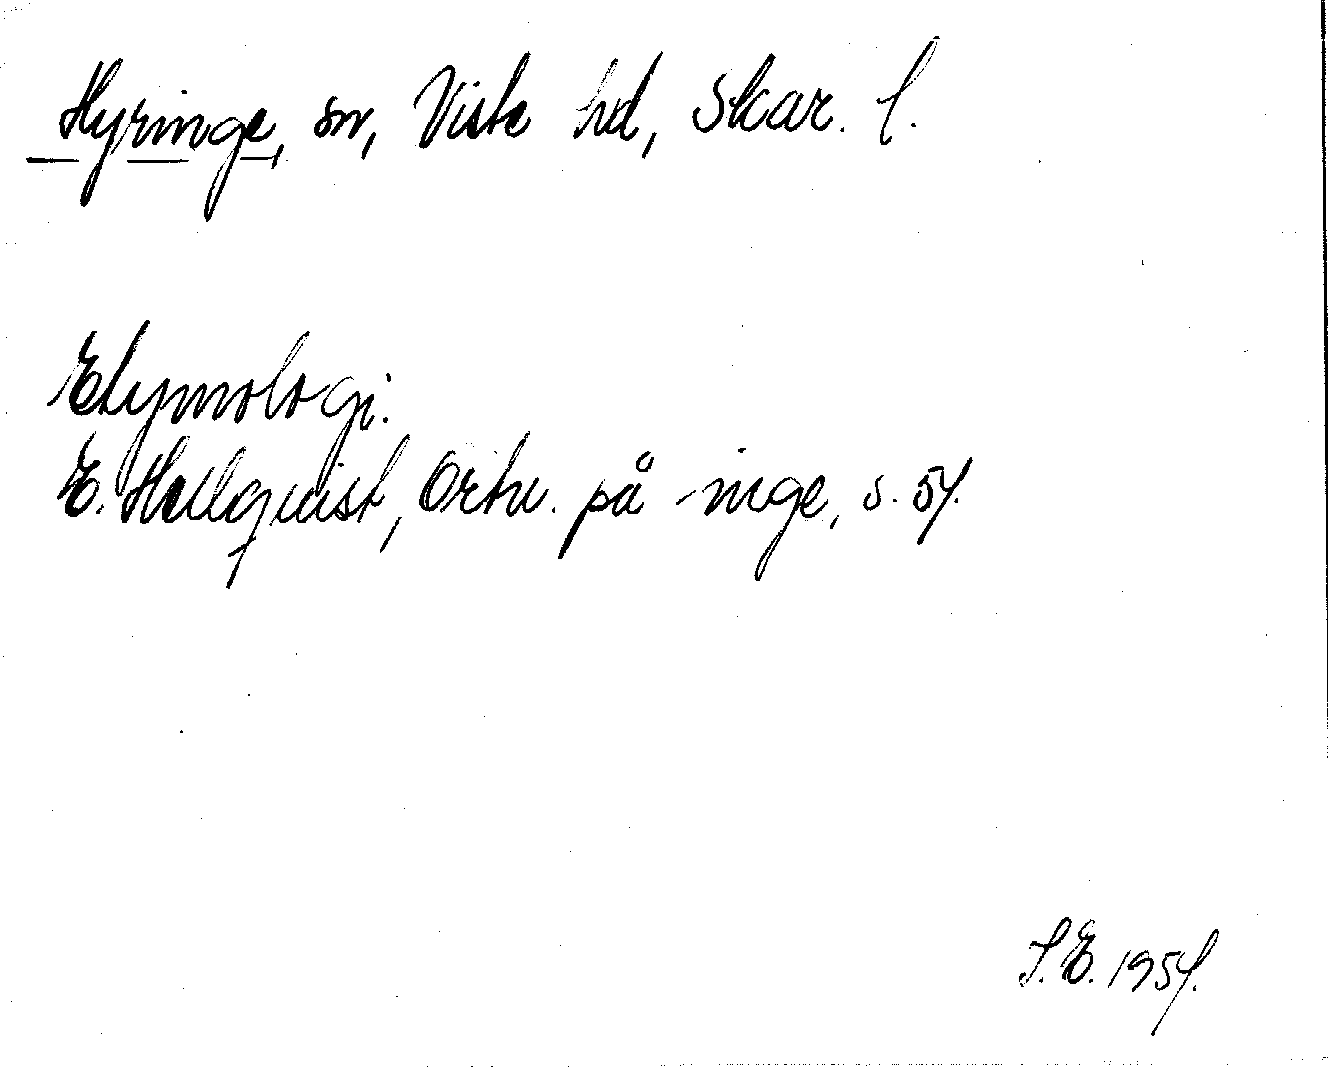 Hyringe, sn, Viste hd, Skar. l.
Etymologi.
E. Hellquist, Ortn. på -inge, s. 54.
S.E. 1954.